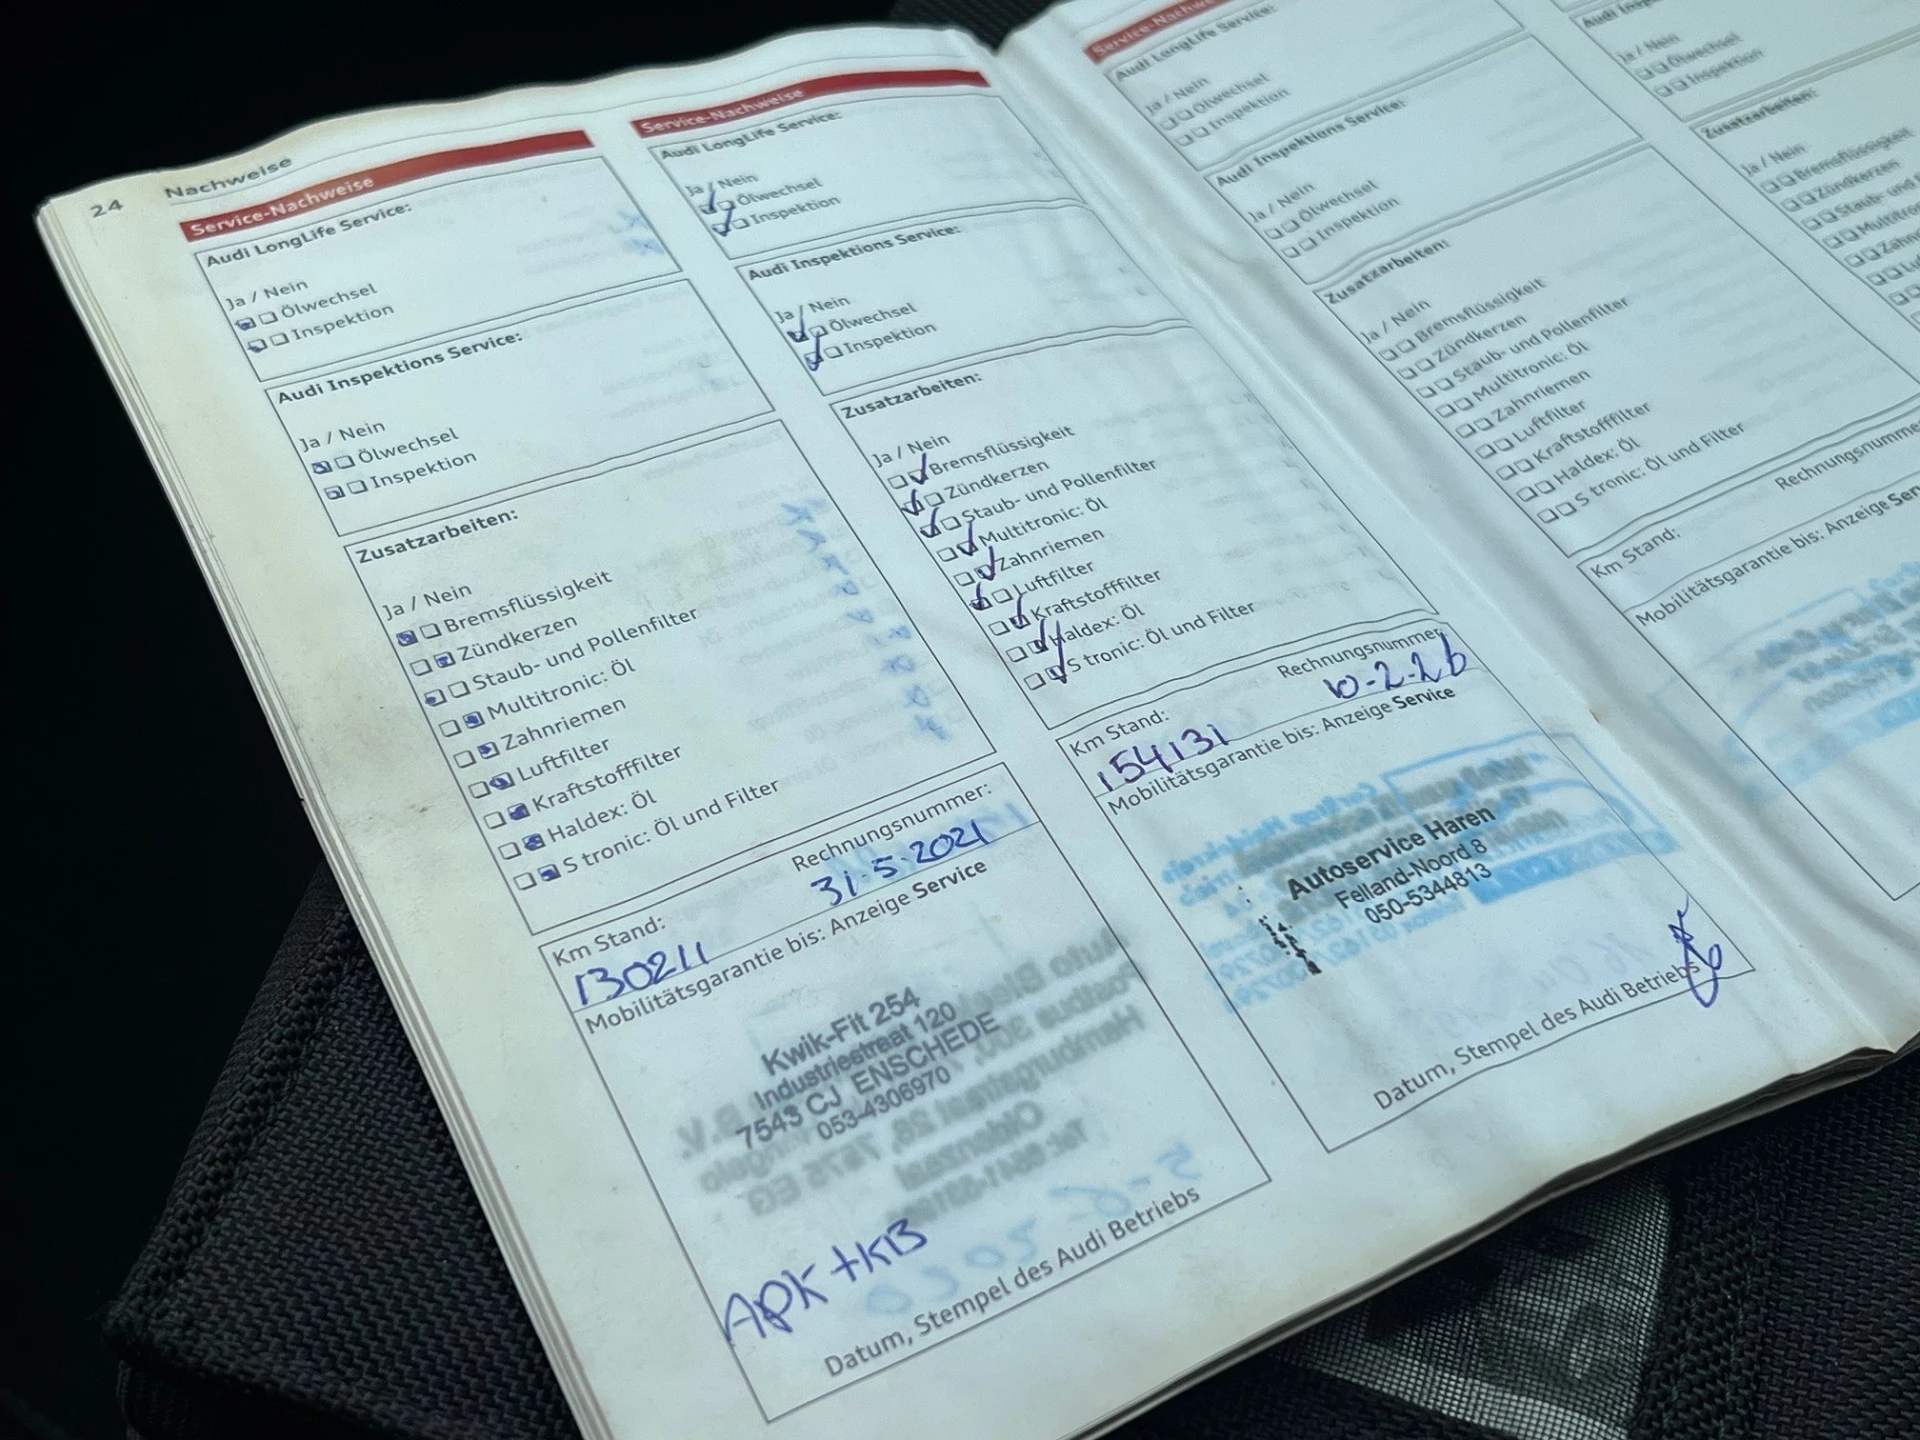 24
Nachweise
Service-Nachweise
Audi LongLife Service:
Ja / Nein
Ölwechsel
Inspektion
Audi Inspektions Service:
Ja / Nein
Ölwechsel
Inspektion
Zusatzarbeiten:
Ja / Nein
Bremsflüssigkeit
Zündkerzen
Staub- und Pollenfilter
Multitronic: Öl
Zahnriemen
Luftfilter
Kraftstofffilter
Haldex: Öl
S tronic: Öl und Filter
Rechnungsnummer:
31-5-2021
Km Stand:
130211
Mobilitätsgarantie bis: Anzeige Service
Kwik-Fit 254
Industriestraat 120
7543 CJ ENSCHEDE
053-4306970
APK + KB
Datum, Stempel des Audi Betriebs
Service-Nachweise
Audi LongLife Service:
Ja / Nein
Ölwechsel
Inspektion
Audi Inspektions Service:
Ja / Nein
Ölwechsel
Inspektion
Zusatzarbeiten:
Ja / Nein
Bremsflüssigkeit
Zündkerzen
Staub- und Pollenfilter
Multitronic: Öl
Zahnriemen
Luftfilter
Kraftstofffilter
Haldex: Öl
S tronic: Öl und Filter
Rechnungsnummer:
10-2-26
Km Stand:
154131
Mobilitätsgarantie bis: Anzeige Service
Autoservice Haren
Felland-Noord 8
050-5344813
Datum, Stempel des Audi Betriebs
Service-Nachweise
Audi LongLife Service:
Ja / Nein
Ölwechsel
Inspektion
Audi Inspektions Service:
Ja / Nein
Ölwechsel
Inspektion
Zusatzarbeiten:
Ja / Nein
Bremsflüssigkeit
Zündkerzen
Staub- und Pollenfilter
Multitronic: Öl
Zahnriemen
Luftfilter
Kraftstofffilter
Haldex: Öl
S tronic: Öl und Filter
Rechnungsnumme
Km Stand:
Mobilitätsgarantie bis: Anzeige Ser
Audi Insp
Ja / Nein
Ölwechsel
Inspektion
Zusatzarbeiten:
Ja / Nein
Bremsflüssigkeit
Zündkerzen
Staub- und
Multitro
Zahn
Lu